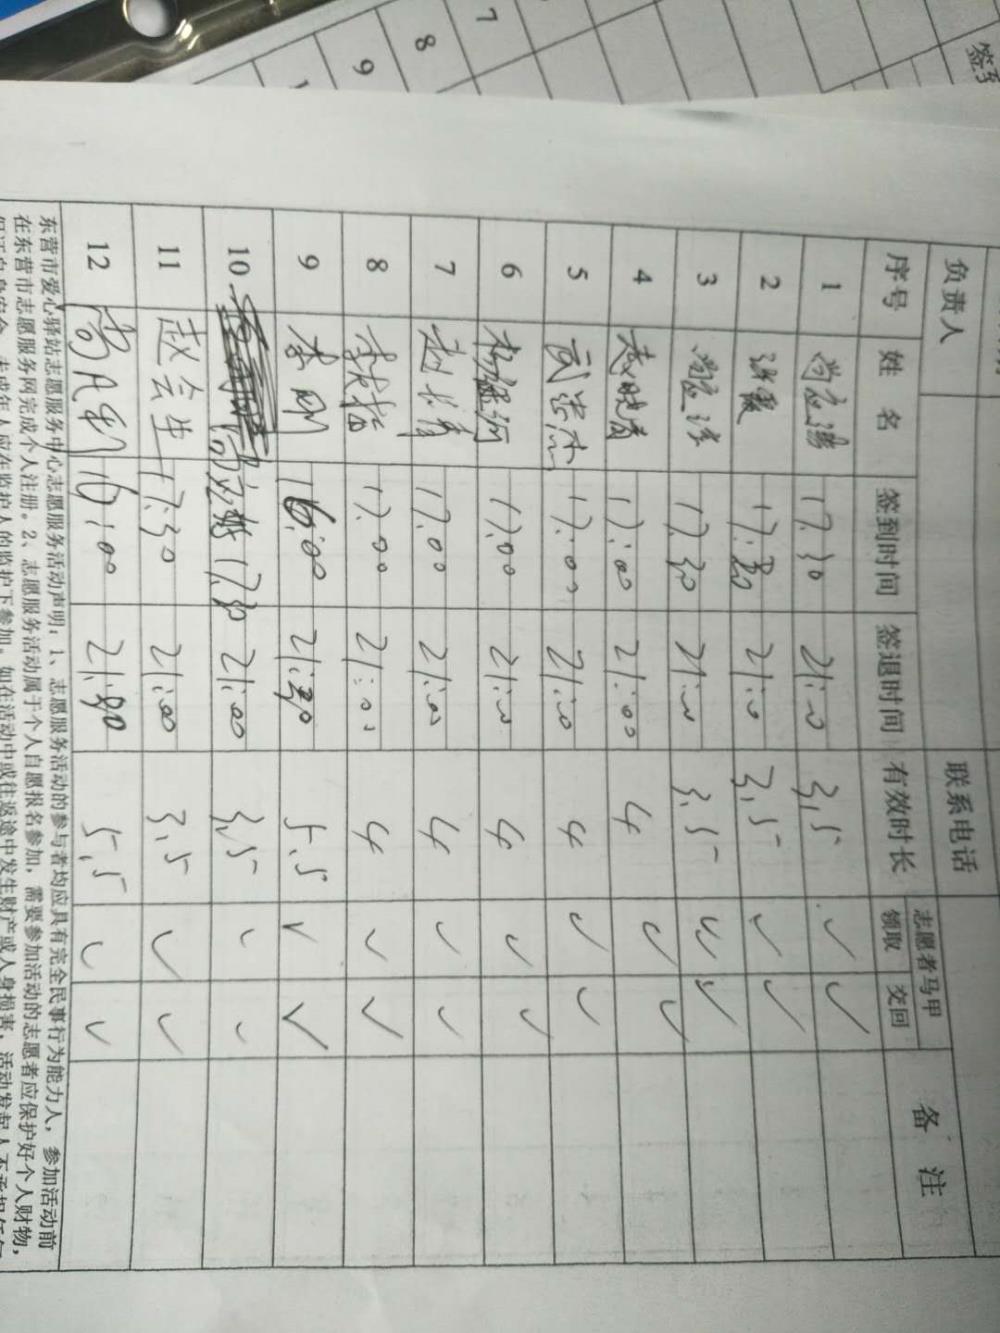 负责人 联系电话
序号 姓 名 签到时间 签退时间 有效时长 志愿者马甲 备 注
领取 交回
1 17:30 21:00 3.5 ✓ ✓
2 17:30 21:00 3.5 ✓ ✓
3 17:30 21:00 3.5 ✓ ✓
4 17:00 21:00 4 ✓ ✓
5 17:00 21:00 4 ✓ ✓
6 17:00 21:00 4 ✓ ✓
7 17:00 21:00 4 ✓ ✓
8 17:00 21:00 4 ✓ ✓
9 李刚 16:00 21:30 5.5 ✓ ✓
10 17:30 21:00 3.5 ✓ ✓
11 赵会生 17:30 21:00 3.5 ✓ ✓
12 16:00 21:30 5.5 ✓ ✓
东营市爱心驿站志愿服务中心志愿服务活动声明：1、志愿服务活动的参与者均应具有完全民事行为能力人，参加活动前
在东营市志愿服务网完成个人注册。2、志愿服务活动属于个人自愿报名参加，需要参加活动的志愿者应保护好个人财物，
保证自身安全，未成年人应在监护人的监护下参加。如在活动中或往返途中发生财产或人身损害，活动发起人不承担任何
签到
7
8
9